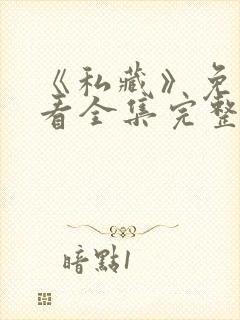 《私藏》免
看全集完整
暗點1